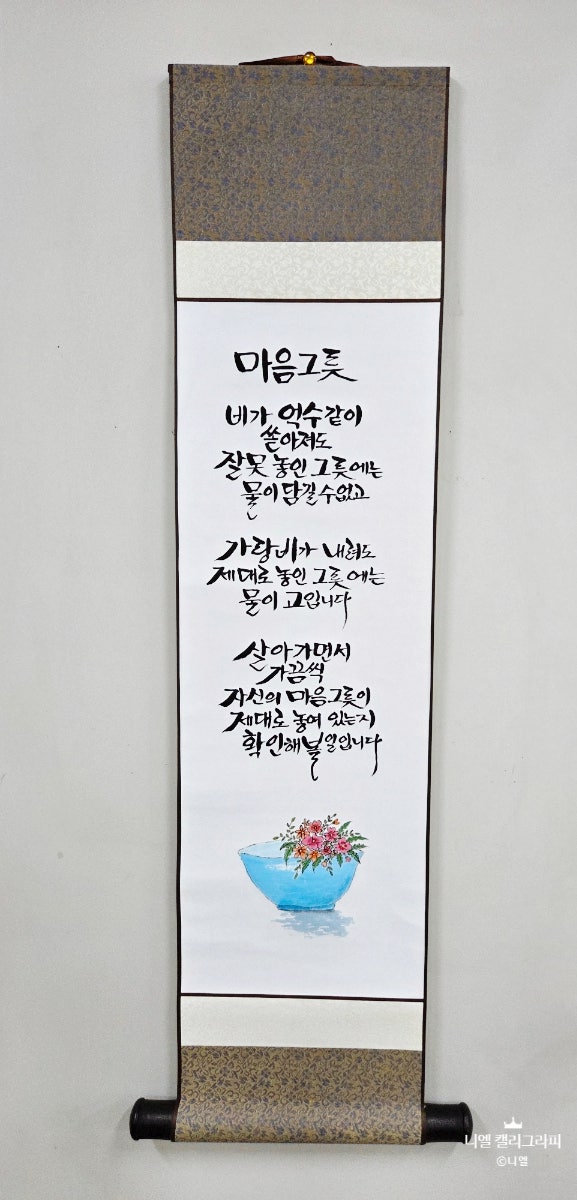 마음그릇
비가 억수같이
쏟아져도
잘못 놓인 그릇에는
물이 담길 수 없고
가랑비가 내려도
제대로 놓인 그릇에는
물이 고입니다
살아가면서
가끔씩
자신의 마음그릇이
제대로 놓여 있는지
확인해볼 일입니다
니엘 캘리그라피
©니엘